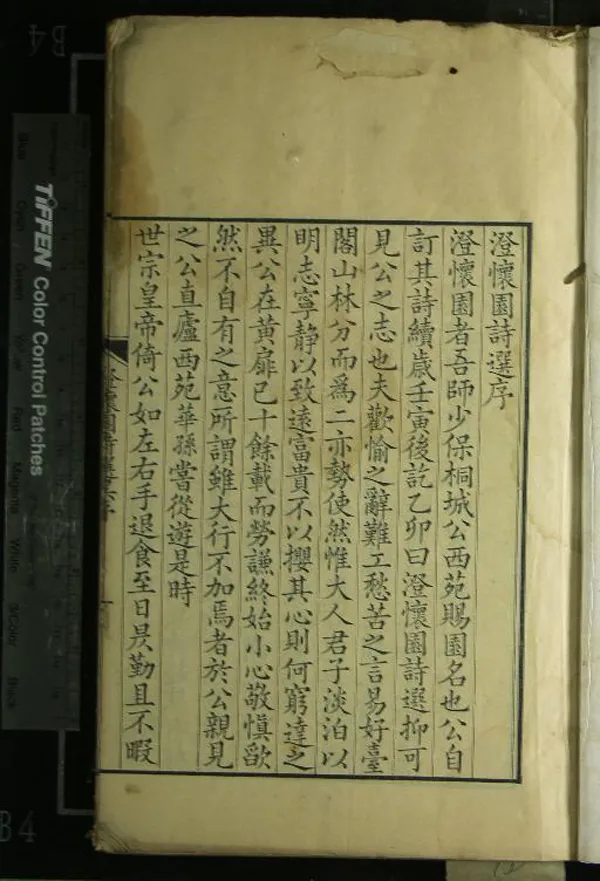 澄懷園詩選序
澄懷園者吾師少保桐城公西苑賜園名也公自
訂其詩續歲壬寅後訖乙卯曰澄懷園詩選抑可
見公之志也夫歡愉之辭難工愁苦之言易好臺
閣山林分而爲二亦勢使然惟大人君子淡泊以
明志寧靜以致遠富貴不以攖其心則何窮達之
異公在黃扉已十餘載而勞謙終始小心敬慎欿
然不自有之意所謂雖大行不加焉者於公親見
之公直廬西苑華孫嘗從遊是時
世宗皇帝倚公如左右手退食至日昃勤且不暇
TIFFEN Color Control Patches
Blue
Cyan
Green
Yellow
Red
Magenta
White
3/Color
Black
B4
B4